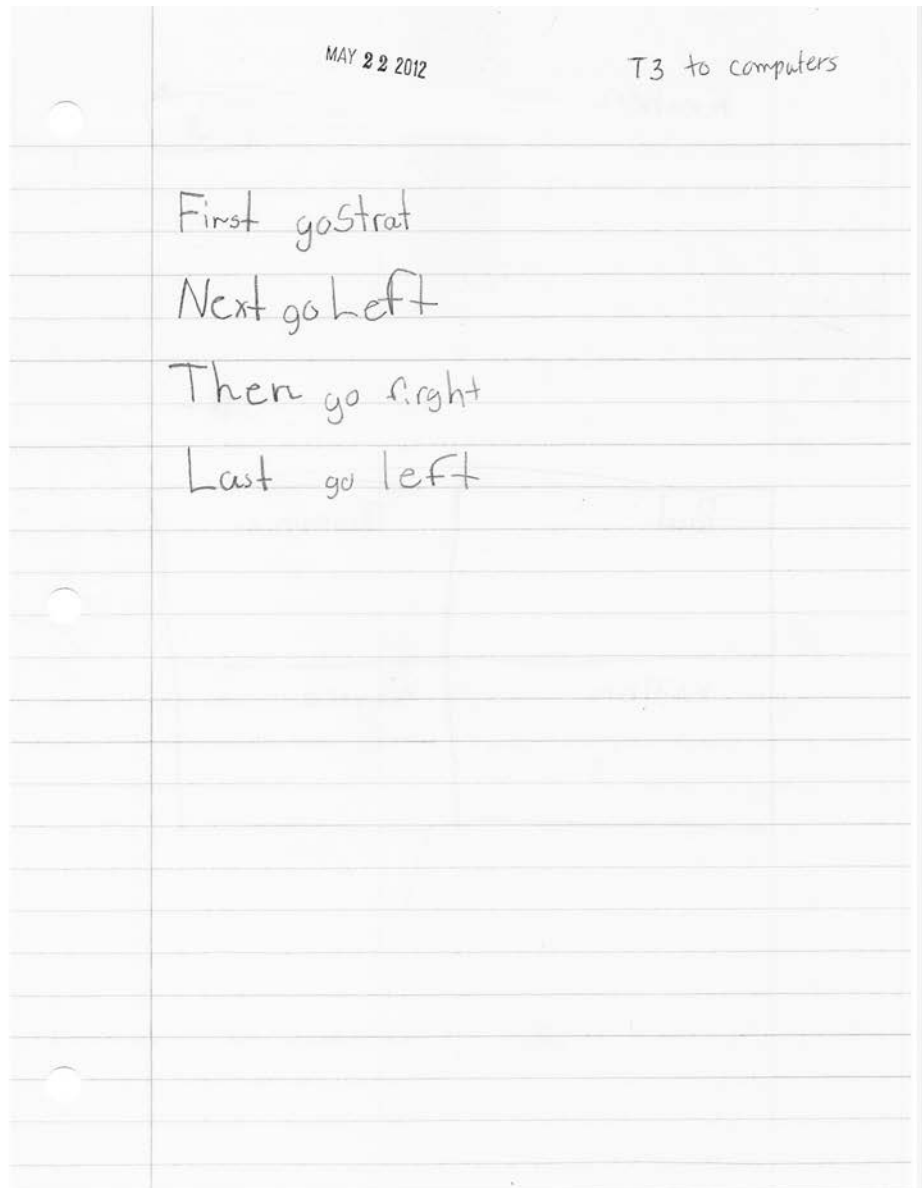 MAY 22 2012
T3 to computers
First go Strat
Next go Left
Then go rirght
Last go left